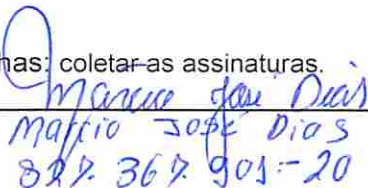 nas: coletar as assinaturas.
Marcio José Dias
Marcio José Dias
827. 367. 901 - 20